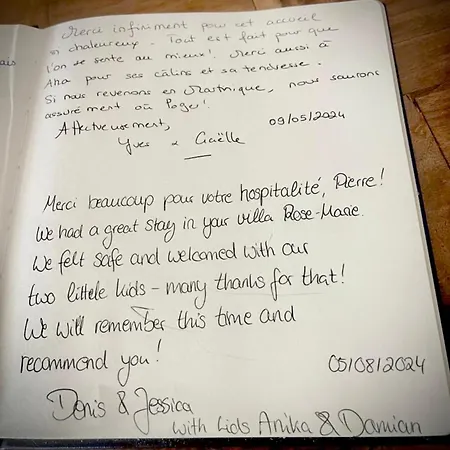 ais
Merci infiniment pour cet accueil
si chaleureux. Tout est fait pour que
l'on se sente au mieux! Merci aussi à
Aha pour ses câlins et sa tendresse.
Si nous revenons en Martinique, nous saurons
assurément où loger!
Affectueusement,
09/05/2024
Yves & Gaëlle
Merci beaucoup pour votre hospitalité, Pierre!
We had a great stay in your villa Rose-Marie.
We felt safe and welcomed with our
two littele kids - many thanks for that!
We will remember this time and
recommend you!
05/08/2024
Denis & Jessica
with kids Anika & Damian